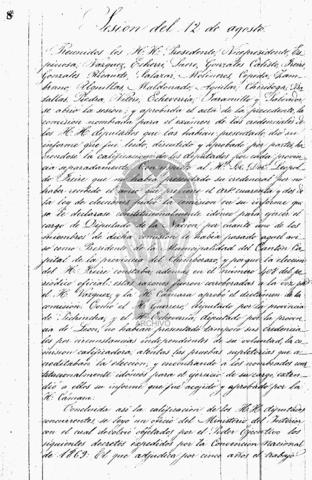 8
Sesion del 12 de agosto
Reunidos los H.H. Presidente, Vicepresidente, Es-
pinosa, Vazquez, Echeverr, Gonzales Calisto,
Gonzales Alicante, Salazar, Molineros, Cepeda, Zam-
brano, Arguillas, Maldonado, Aguilar, Chiriboga,
Piedra, Nieto, Echeverria, Jaramillo y Salvador,
se abrió la sesión; y aprobada el acta de la precedente, la
comision nombrada para el examen de las credenciales de
los H.H. diputados que las habian presentado dió su
informe que fué leido, discutido y aprobado por partes, ha-
ciendose la calificacion de los diputados por cada provin-
cia separadamente.
de Freire que no habia presentado su credencial por no
haber recibido el
ley de elecciones pidió la comision en su informe que
se le declarase constitucionalmente idoneo para ejercer el
cargo de Diputado de la Nacion por cuanto uno de los
miembros de dicha comision
como Presidente de la Municipalidad del Canton Ca-
pital de la provincia del Chimborazo, y porque la eleccion
del H. Freire constaba ademas en el numero 405 del pe-
riódico oficial: estas razones fueron corroboradas a la vez por
el H. Vazquez, y la H. Cámara aprobó el dictamen de la
comision. Como el H. Guerrero, diputado por la provincia
de Pichincha, y el H. Echeverria, diputado por la provin-
cia de Leon, no habian presentado tampoco sus credencia-
les por circunstancias independientes de su voluntad, la co-
mision calificadora, atentas las pruebas supletorias que a-
creditaban la eleccion, y encontrando a los nombrados cons-
titucionalmente idoneos para el ejercicio de su cargo, exten-
dió a ellos su informe que fué acogido y aprobado por la
H. Cámara.
Concluida asi la calificacion de los H.H. diputados
concurrentes, se leyo un oficio del Ministerio del Interior
con el cual devolvio objetados por el Poder Ejecutivo los
siguientes decretos expedidos por la Convencion Nacional
de 1869: El que adjudica por cinco años el trabajo
ARCHIVO